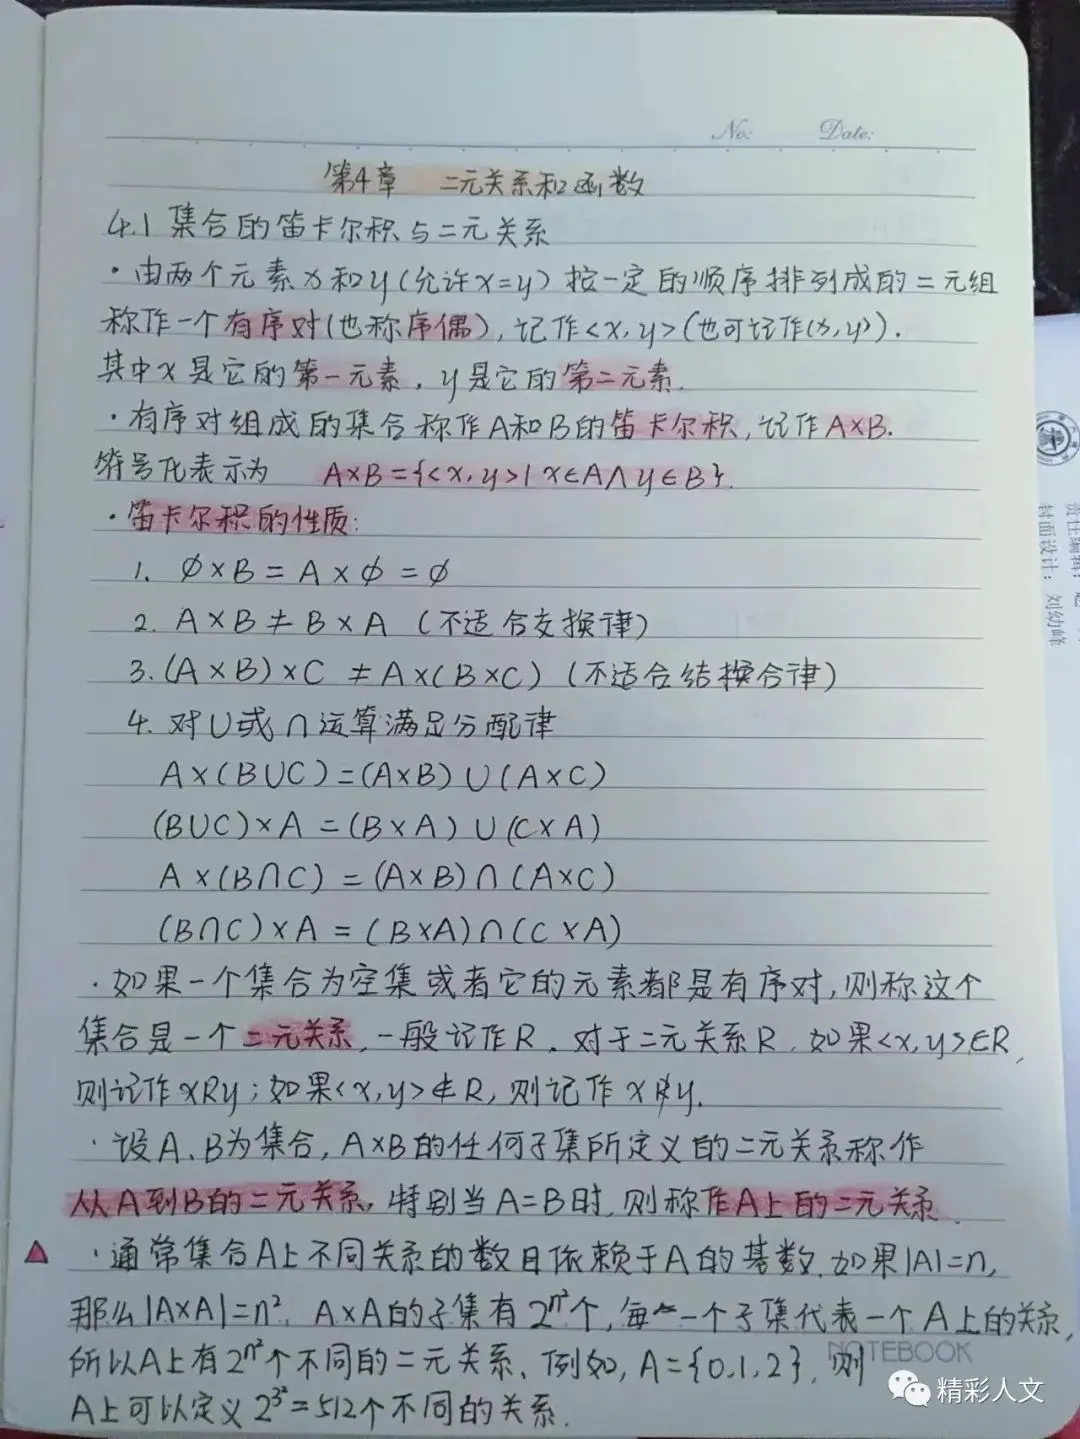 No: Date:
第4章 二元关系和函数
4.1 集合的笛卡尔积与二元关系
·由两个元素x和y(允许x=y)按一定的顺序排列成的二元组
称作一个有序对(也称序偶),记作<x,y>(也可记作(x,y)).
其中x是它的第一元素,y是它的第二元素.
·有序对组成的集合称作A和B的笛卡尔积,记作A×B.
符号化表示为 A×B={<x,y>|x∈A∧y∈B}.
·笛卡尔积的性质:
1. ∅×B=A×∅=∅
2. A×B≠B×A (不适合交换律)
3.(A×B)×C ≠A×(B×C) (不适合结合律)
4. 对∪或∩运算满足分配律
A×(B∪C)=(A×B)∪(A×C)
(B∪C)×A=(B×A)∪(C×A)
A×(B∩C)=(A×B)∩(A×C)
(B∩C)×A=(B×A)∩(C×A)
·如果一个集合为空集或者它的元素都是有序对,则称这个
集合是一个二元关系,一般记作R.对于二元关系R,如果<x,y>∈R,
则记作xRy;如果<x,y>∉R,则记作xR̸y.
·设A、B为集合,A×B的任何子集所定义的二元关系称作
从A到B的二元关系,特别当A=B时,则称作A上的二元关系.
·通常集合A上不同关系的数目依赖于A的基数.如果|A|=n,
那么|A×A|=n²,A×A的子集有2^n²个,每一个子集代表一个A上的关系,
所以A上有2^n²个不同的二元关系、例如,A={0,1,2},则
A上可以定义2^3²=512个不同的关系.
NOTEBOOK
精彩人文
责任编辑:赵
封面设计:刘幼峰